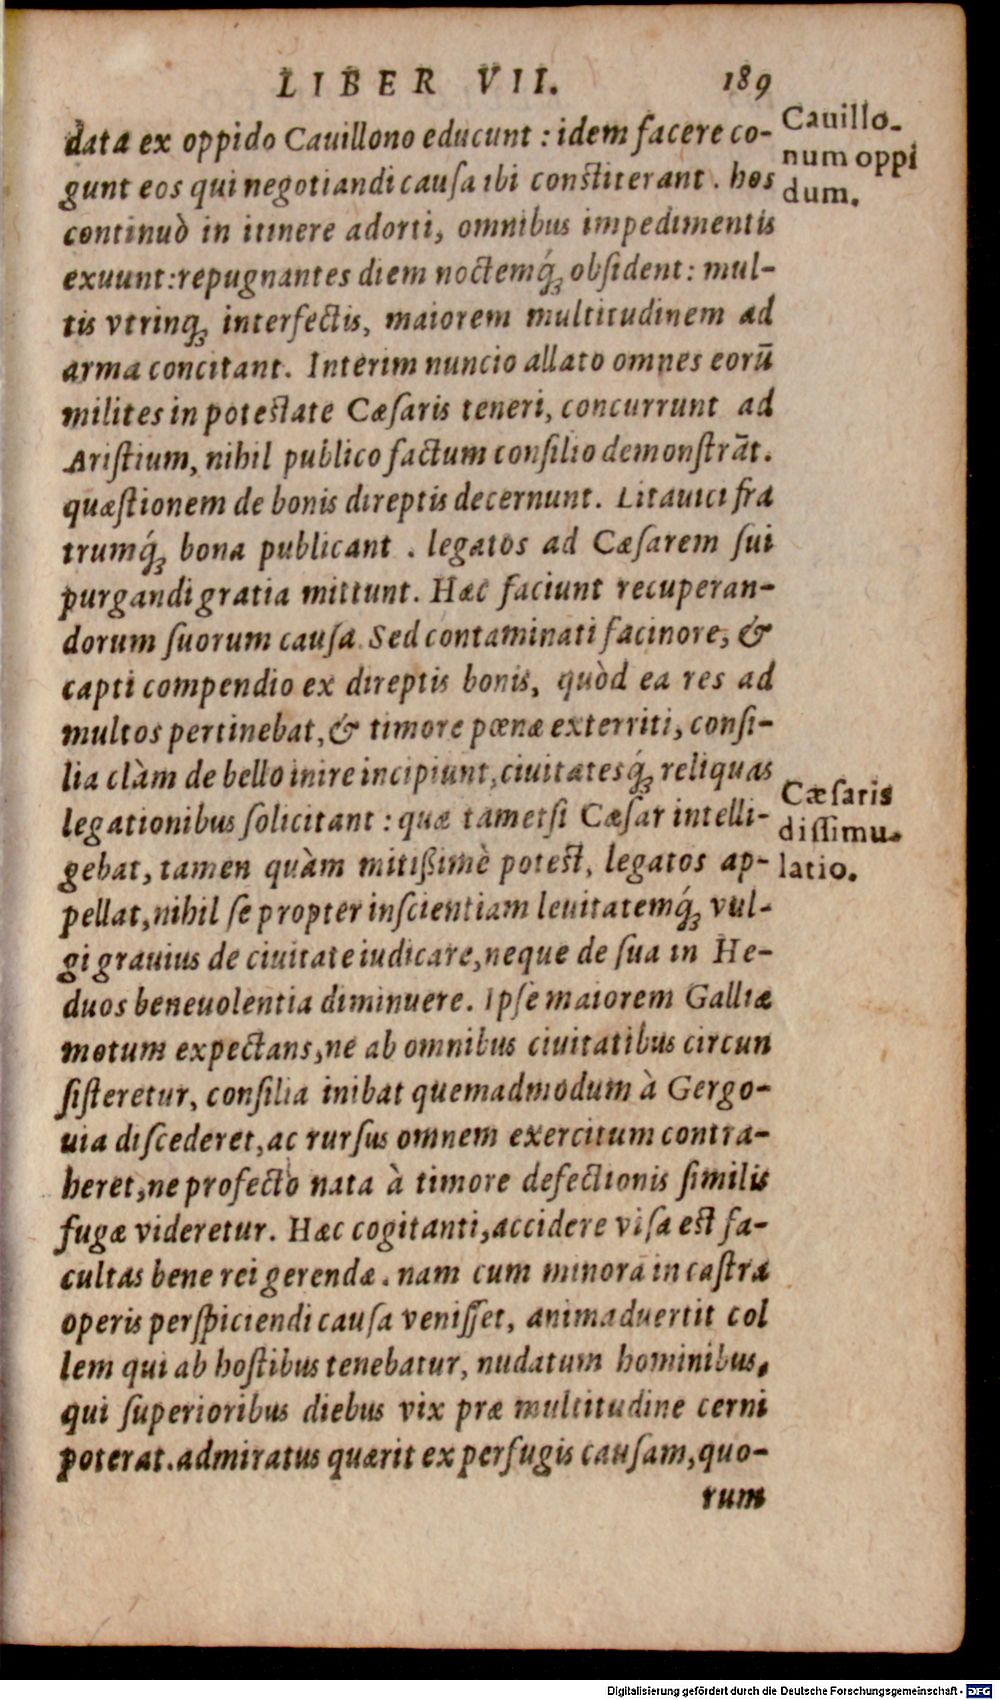 LIBER VII. 189
data ex oppido Cauillono educunt : idem facere co-
gunt eos qui negotiandi causa ibi constiterant . hos
continuò in itinere adorti, omnibus impedimentis
exuunt: repugnantes diem noctemq́ꝫ obsident: mul-
tis vtrinqꝫ interfectis, maiorem multitudinem ad
arma concitant. Interim nuncio allato omnes eorū
milites in potestate Cæsaris teneri, concurrunt ad
Aristium, nihil publico factum consilio demonstrāt.
quæstionem de bonis direptis decernunt. Litauici fra
trumq́ꝫ bona publicant . legatos ad Cæsarem sui
purgandi gratia mittunt. Hæc faciunt recuperan-
dorum suorum causa. Sed contaminati facinore, &
capti compendio ex direptis bonis, quòd ea res ad
multos pertinebat, & timore pœnæ exterriti, consi-
lia clàm de bello inire incipiunt, ciuitatesq́ꝫ reliquas
legationibus solicitant : quæ tametsi Cæsar intelli-
gebat, tamen quàm mitißimè potest, legatos ap-
pellat, nihil se propter inscientiam leuitatemq́ꝫ vul-
gi grauius de ciuitate iudicare, neque de sua in He-
duos beneuolentia diminuere. Ipse maiorem Galliæ
motum expectans, ne ab omnibus ciuitatibus circun
sisteretur, consilia inibat quemadmodum à Gergo-
uia discederet, ac rursus omnem exercitum contra-
heret, ne profectio nata à timore defectionis similis
fugæ videretur. Hæc cogitanti, accidere visa est fa-
cultas bene rei gerendæ. nam cum minora in castra
operis perspiciendi causa venisset, animaduertit col
lem qui ab hostibus tenebatur, nudatum hominibus,
qui superioribus diebus vix præ multitudine cerni
poterat. admiratus quærit ex perfugis causam, quo-
rum
Cauillo-
num oppi
dum.
Cæsaris
dissimu-
latio.
Digitalisierung gefördert durch die Deutsche Forschungsgemeinschaft - DFG